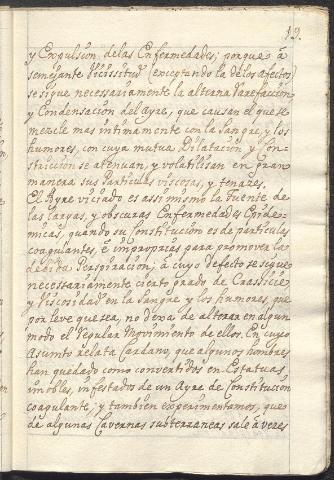 19.
y Expulsion de las Enfermedades; porque à
semejante Vicissitud (exceptando la de los afectos)
se sigue necessariamente la alterna Rarefaccion
y Condensacion del Ayre, que causan el que se
mezcle mas intimamente con la Sangre, y los
humores, con cuya mutua Dilatacion y Con-
striccion se atenuan, y volatilisan en gran
manera sus Particulas viscosas, y tenazes.
El Ayre viciado es assi mismo la Fuente de
las largas, y obscuras Enfermedades Epide-
micas, quando su Constitucion es de particulas
coagulantes, è improprias para promover la
debida Perspiracion; à cuyo defecto se sigue
necessariamente cierto grado de Crassicie
y Viscosidad en la Sangre y los humores, que
por leve que sea, no dexa de alterar en algun
modo el regular Movimiento de ellos. En cuyo
Asumto relata Cardano, que algunos hombres
han quedado como convertidos en Estatuas
imobles, infestados de un Ayre de Constitucion
coagulante; y tambien experimentamos, que
de algunas Cavernas subterraneas sale à veres